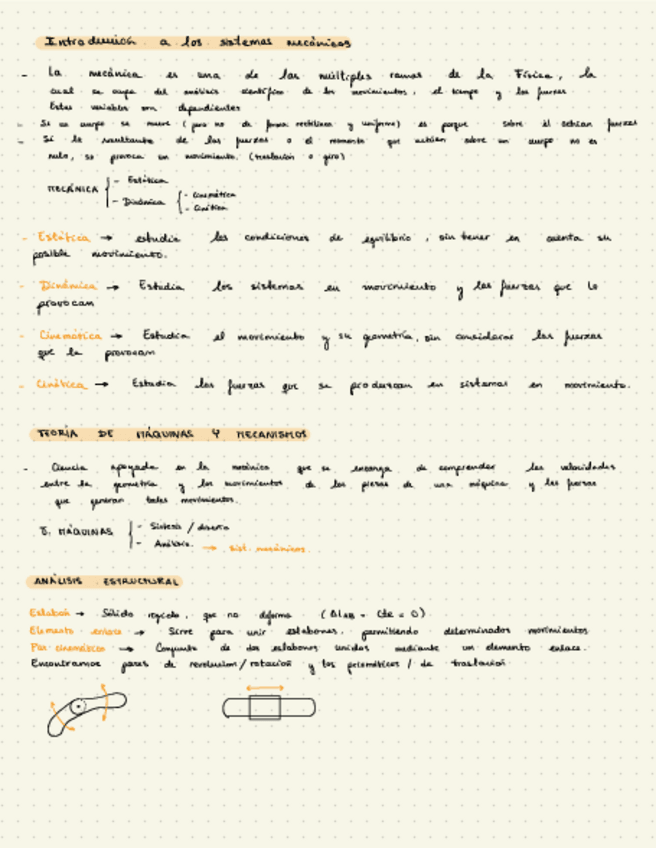 Introducción a los sistemas mecánicos
- La mecánica es una de las múltiples ramas de la Física, la
cual se ocupa del análisis científico de los movimientos, el tiempo y las fuerzas.
Estas variables son dependientes
- Si un cuerpo se mueve (pero no de forma rectilínea y uniforme) es porque sobre él actúan fuerzas
- Si la resultante de las fuerzas o el momento que actúan sobre un cuerpo no es
nulo, se provoca un movimiento. (traslación o giro)
MECÁNICA
- Estática
- Dinámica
- Cinemática
- Cinética
- Estática → estudia las condiciones de equilibrio, sin tener en cuenta su
posible movimiento.
- Dinámica → Estudia los sistemas en movimiento y las fuerzas que lo
provocan
- Cinemática → Estudia el movimiento y su geometría, sin considerar las fuerzas
que la provocan
- Cinética → Estudia las fuerzas que se produzcan en sistemas en movimiento.
TEORÍA DE MÁQUINAS Y MECANISMOS
- Ciencia apoyada en la mecánica que se encarga de comprender las velocidades
entre la geometría y los movimientos de las piezas de una máquina y las fuerzas
que generan tales movimientos.
T. MÁQUINAS
- Síntesis / diseño
- Análisis. → sist. mecánicos.
ANÁLISIS ESTRUCTURAL
Eslabón → Sólido rígido, que no deforma
Elemento enlace → Sirve para unir eslabones, permitiendo determinados movimientos
Par cinemático → Conjunto de dos eslabones unidos mediante un elemento enlace.
Encontramos pares de revolución / rotación y los prismáticos / de traslación